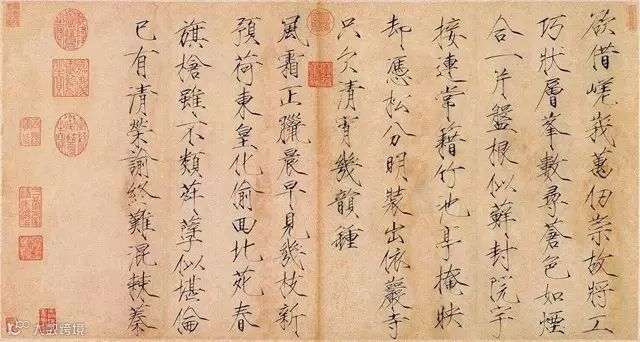 欲借嵯峩萬仞崇故將工
巧狀層峯數尋蒼色如煙
合一片盤根似蘚封院宇
接連常籍竹池亭掩映
却憑松分明裝出依巖寺
只欠清宵幾韻鍾
風霜正臘晨早見幾枝新
預荷東皇化偷回北苑春
旗槍雖不類荈孽似堪倫
已有清榮諭終難混棘蓁
大数跨境